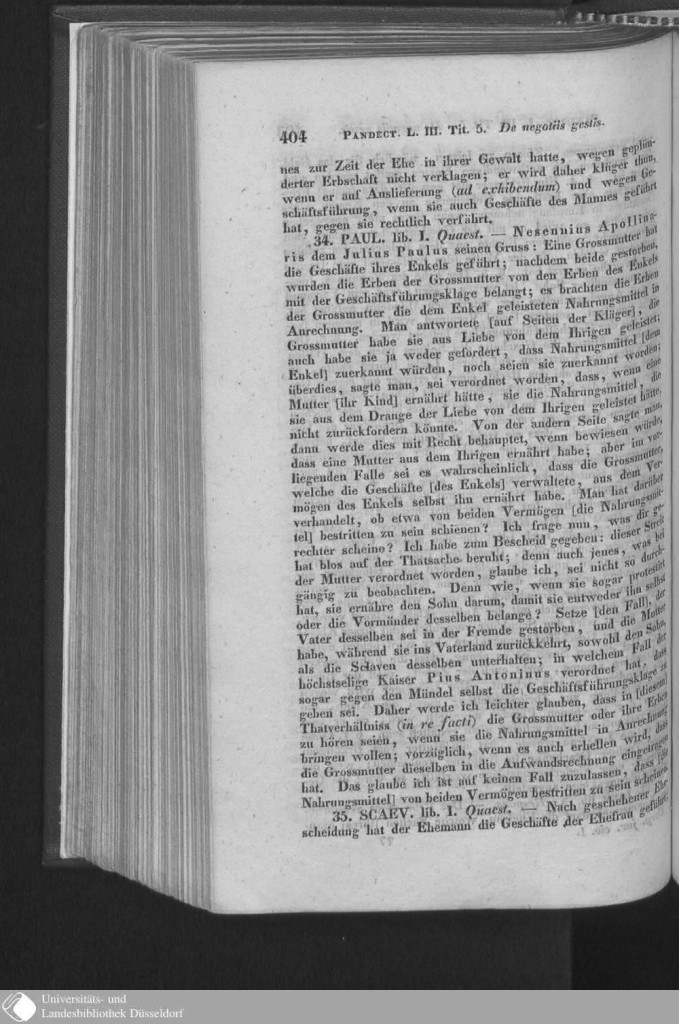 404 PANDECT. L. III. Tit. 5. De negotiis gestis.
nes zur Zeit der Ehe in ihrer Gewalt hatte, wegen geplün-
derter Erbschaft nicht verklagen; er wird daher klüger thun,
wenn er auf Auslieferung (ad exhibendum) und wegen Ge-
schäftsführung, wenn sie auch Geschäfte des Mannes geführt
hat, gegen sie rechtlich verfährt.
34. PAUL. lib. I. Quaest. — Nesennius Apollina-
ris dem Julius Paulus seinen Gruss: Eine Grossmutter hat
die Geschäfte ihres Enkels geführt; nachdem beide gestorben,
wurden die Erben der Grossmutter von den Erben des Enkels
mit der Geschäftsführungsklage belangt; es brachten die Erben
der Grossmutter die dem Enkel geleisteten Nahrungsmittel in
Anrechnung. Man antwortete [auf Seiten der Kläger], die
Grossmutter habe sie aus Liebe von dem Ihrigen geleistet;
auch habe sie ja weder gefordert, dass Nahrungsmittel [dem
Enkel] zuerkannt würden, noch seien sie zuerkannt worden;
überdies, sagte man, sei verordnet worden, dass, wenn eine
Mutter [ihr Kind] ernährt hätte, sie die Nahrungsmittel, die
sie aus dem Drange der Liebe von dem Ihrigen geleistet hätte,
nicht zurückfordern könnte. Von der andern Seite sagte man,
dann werde dies mit Recht behauptet, wenn bewiesen würde,
dass eine Mutter aus dem Ihrigen ernährt habe; aber im vor-
liegenden Falle sei es wahrscheinlich, dass die Grossmutter,
welche die Geschäfte [des Enkels] verwaltete, aus dem Ver-
mögen des Enkels selbst ihn ernährt habe. Man hat darüber
verhandelt, ob etwa von beiden Vermögen [die Nahrungsmit-
tel] bestritten zu sein schienen? Ich frage nun, was dir ge-
rechter scheine? Ich habe zum Bescheid gegeben: dieser Streit
hat blos auf der Thatsache beruht; denn auch jenes, was bei
der Mutter verordnet worden, glaube ich, sei nicht so durch-
gängig zu beobachten. Denn wie, wenn sie sogar protestirt
hat, sie ernähre den Sohn darum, damit sie entweder ihn selbst
oder die Vormünder desselben belange? Setze [den Fall], der
Vater desselben sei in der Fremde gestorben, und die Mutter
habe, während sie ins Vaterland zurückkehrt, sowohl den Sohn,
als die Sclaven desselben unterhalten; in welchem Fall der
höchstselige Kaiser Pius Antoninus verordnet hat, dass
sogar gegen den Mündel selbst die Geschäftsführungsklage zu
geben sei. Daher werde ich leichter glauben, dass in [diesem]
Thatverhältniss (in re facti) die Grossmutter oder ihre Erben
zu hören seien, wenn sie die Nahrungsmittel in Anrechnung
bringen wollen; vorzüglich, wenn es auch erhellen wird, dass
die Grossmutter dieselben in die Aufwandsrechnung eingetragen
hat. Das glaube ich ist auf keinen Fall zuzulassen, dass [die
Nahrungsmittel] von beiden Vermögen bestritten zu sein scheinen.
35. SCAEV. lib. I. Quaest. — Nach geschehener Ehe-
scheidung hat der Ehemann die Geschäfte der Ehefrau geführt;
Universitäts- und
Landesbibliothek Düsseldorf